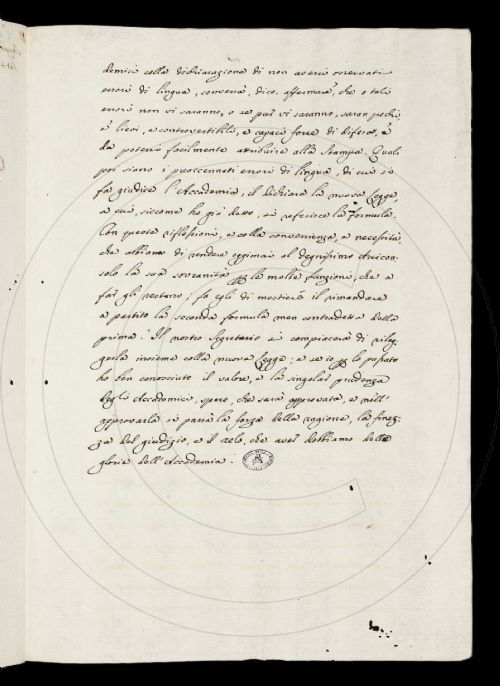 demici colla dichiarazione di non avervi osservati
errori di lingua, converrà, dico, affermare, che o tali
errori non vi saranno, o se pur vi saranno, saran pochi,
e lievi, e controvertibili, e capaci forse di difesa, e
da potersi facilmente attribuire alla Stampa. Quali
poi siano i preaccennati errori di lingua, di cui si
fa giudice l'Accademia, il dichiara la nuova Legge,
a cui, siccome ho già detto, si riferisce la Formula.
Con queste riflessioni, e colla convenienza, e necessità,
che abbiamo di rendere oggimai al degnissimo Aricon-
solo la sua sovranità per le molte funzioni, che a
far gli restano, fa egli di mestieri il rimandare
a partito la seconda formula men contradetta della
prima. Il nostro Segretario si compiacerà di rileg-
gerla insieme colla nuova Legge; e se io per lo passato
ho ben conosciuto il valore, e la singolar prudenza
degli Accademici, spero, che sarà approvata, e nell'
approvarla si parrà la forza della ragione, la finez-
za del giudizio, e il zelo, che aver dobbiamo della
gloria dell'Accademia.